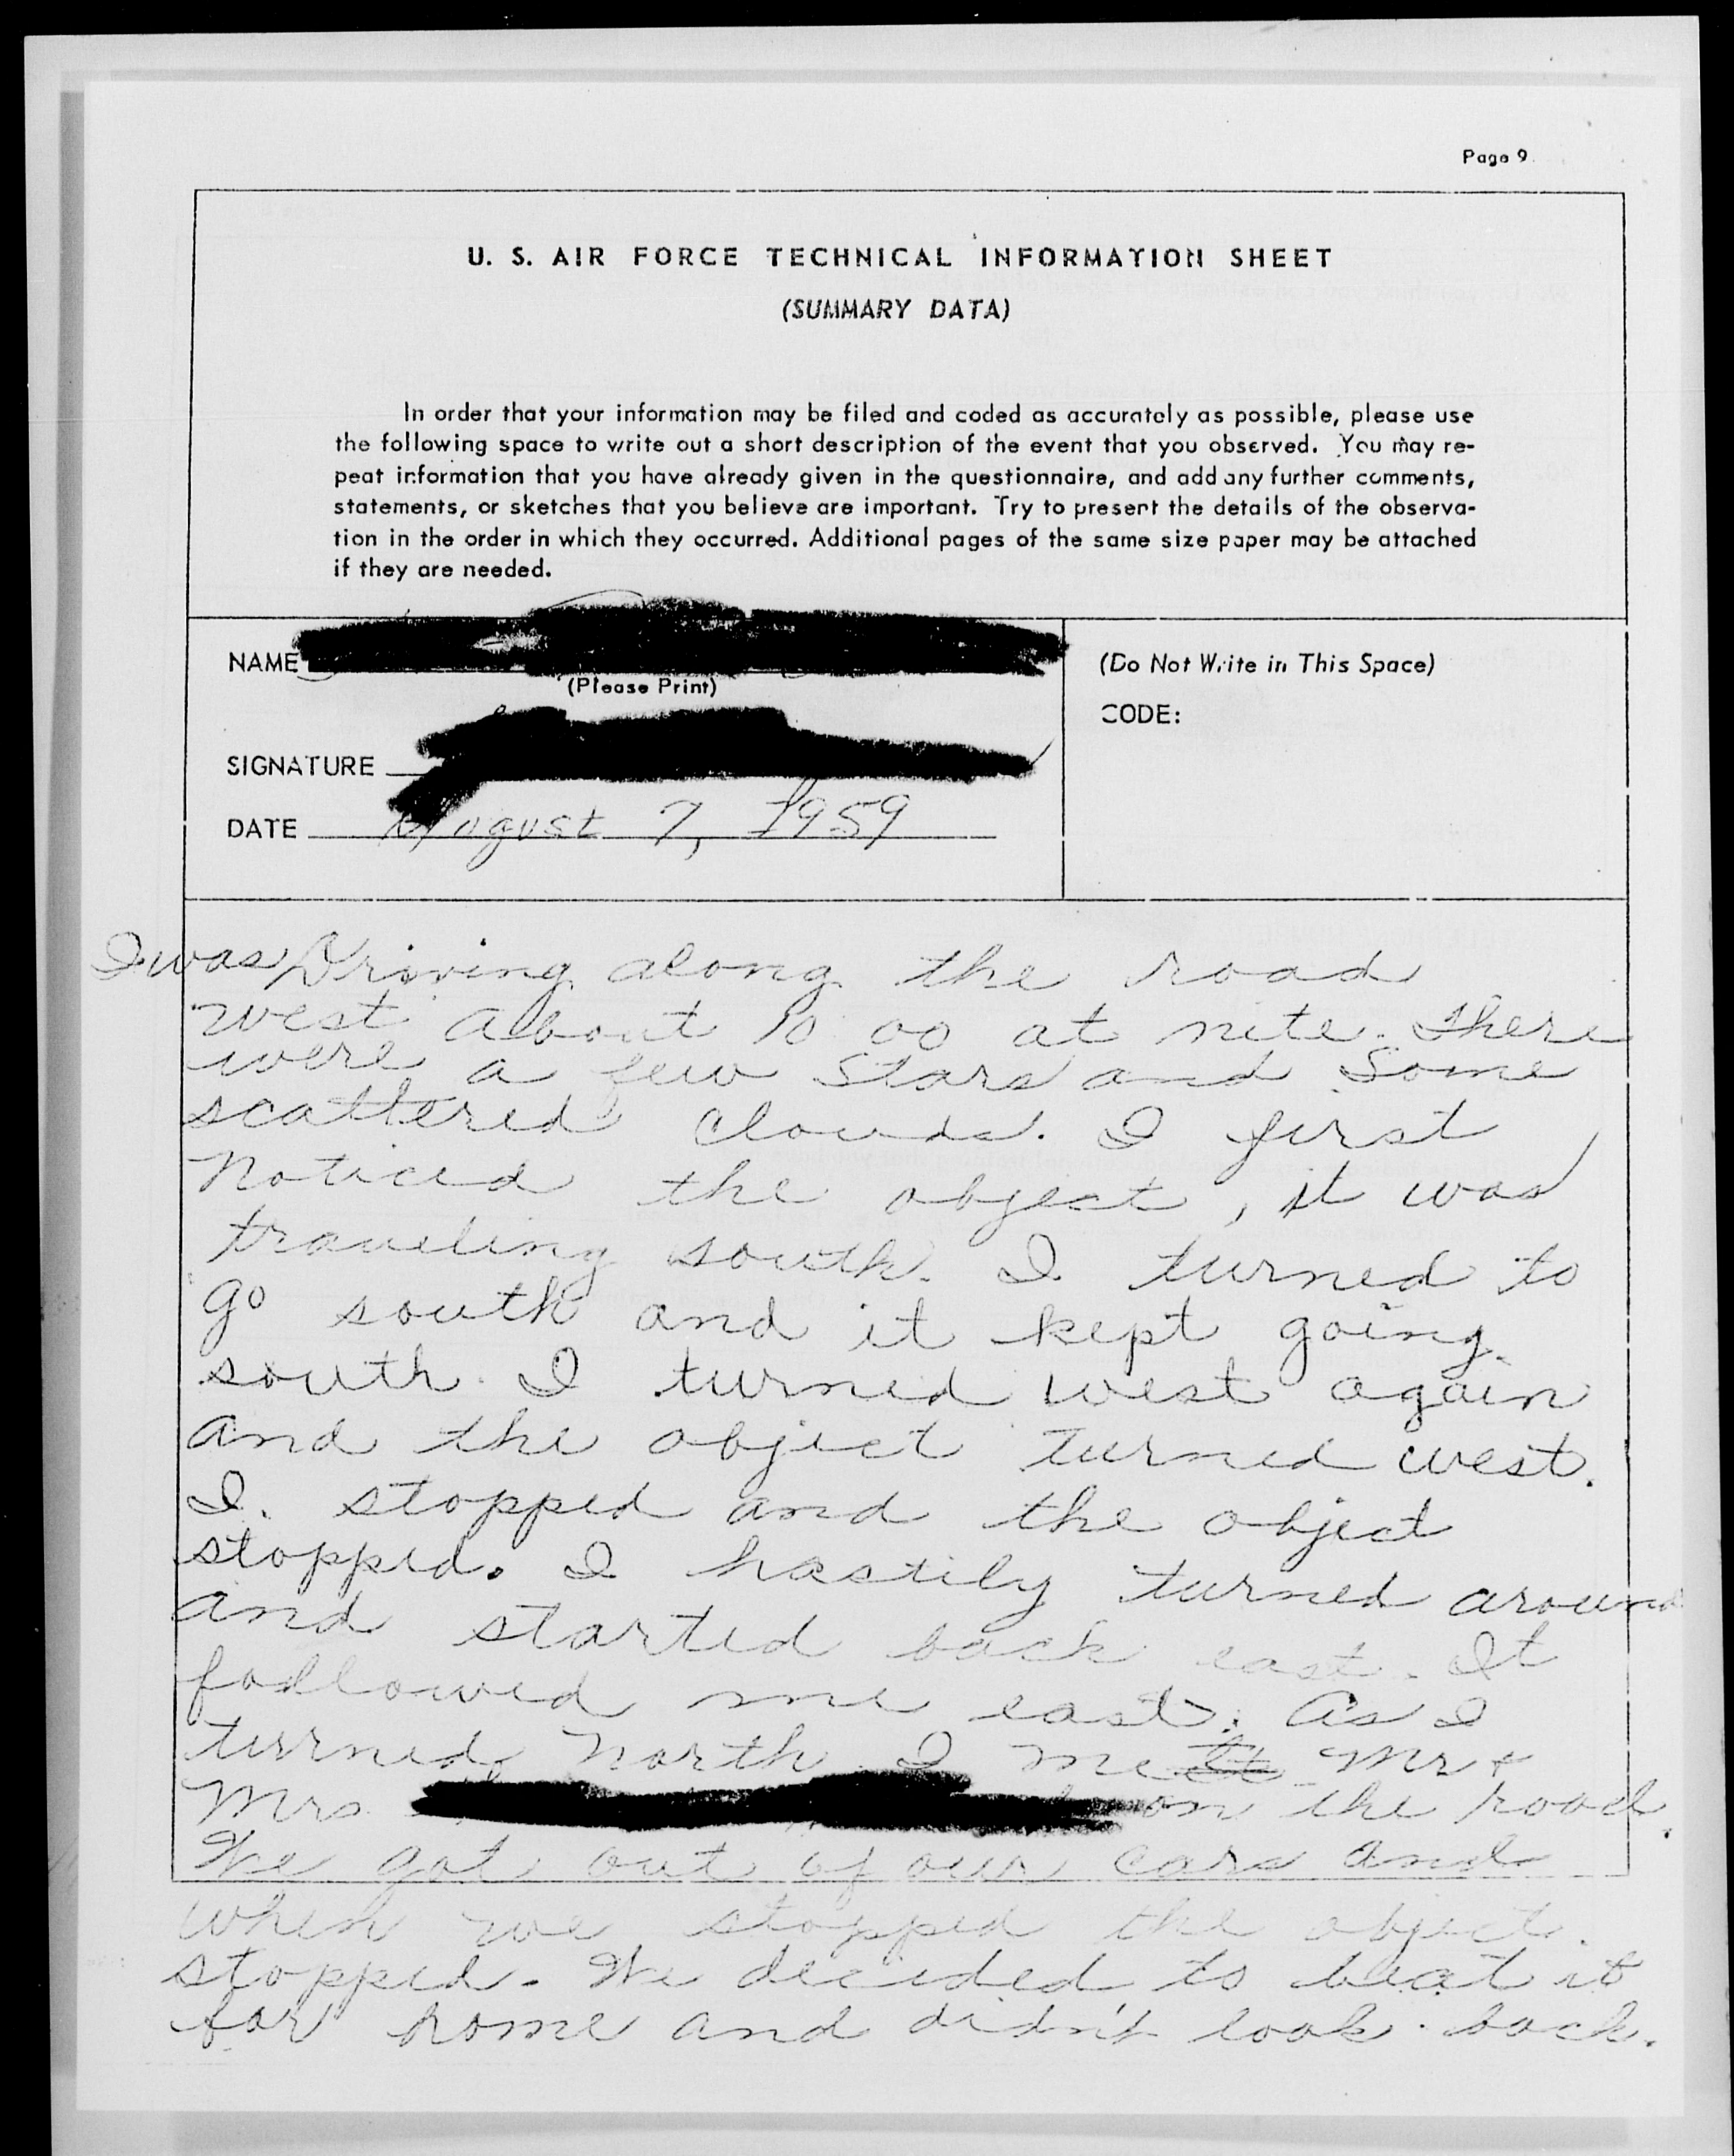 Page 9
U. S. AIR FORCE TECHNICAL INFORMATION SHEET
(SUMMARY DATA)
In order that your information may be filed and coded as accurately as possible, please use
the following space to write out a short description of the event that you observed. You may re-
peat information that you have already given in the questionnaire, and add any further comments,
statements, or sketches that you believe are important. Try to present the details of the observa-
tion in the order in which they occurred. Additional pages of the same size paper may be attached
if they are needed.
NAME
(Please Print)
SIGNATURE
DATE August 7, 1959
(Do Not Write in This Space)
CODE:
I was Driving along the road
west about 10 00 at nite. There
were a few stars and some
scattered clouds. I first
noticed the object, it was
traveling south. I turned to
go south and it kept going
south. I turned west again
and the object turned west.
I stopped and the object
stopped. I hastily turned around
and started back east. It
followed me east. As I
turned north I met Mr &
Mrs on the road.
We got out of our cars and
when we stopped the object
stopped. We decided to beat it
for home and didn't look back.